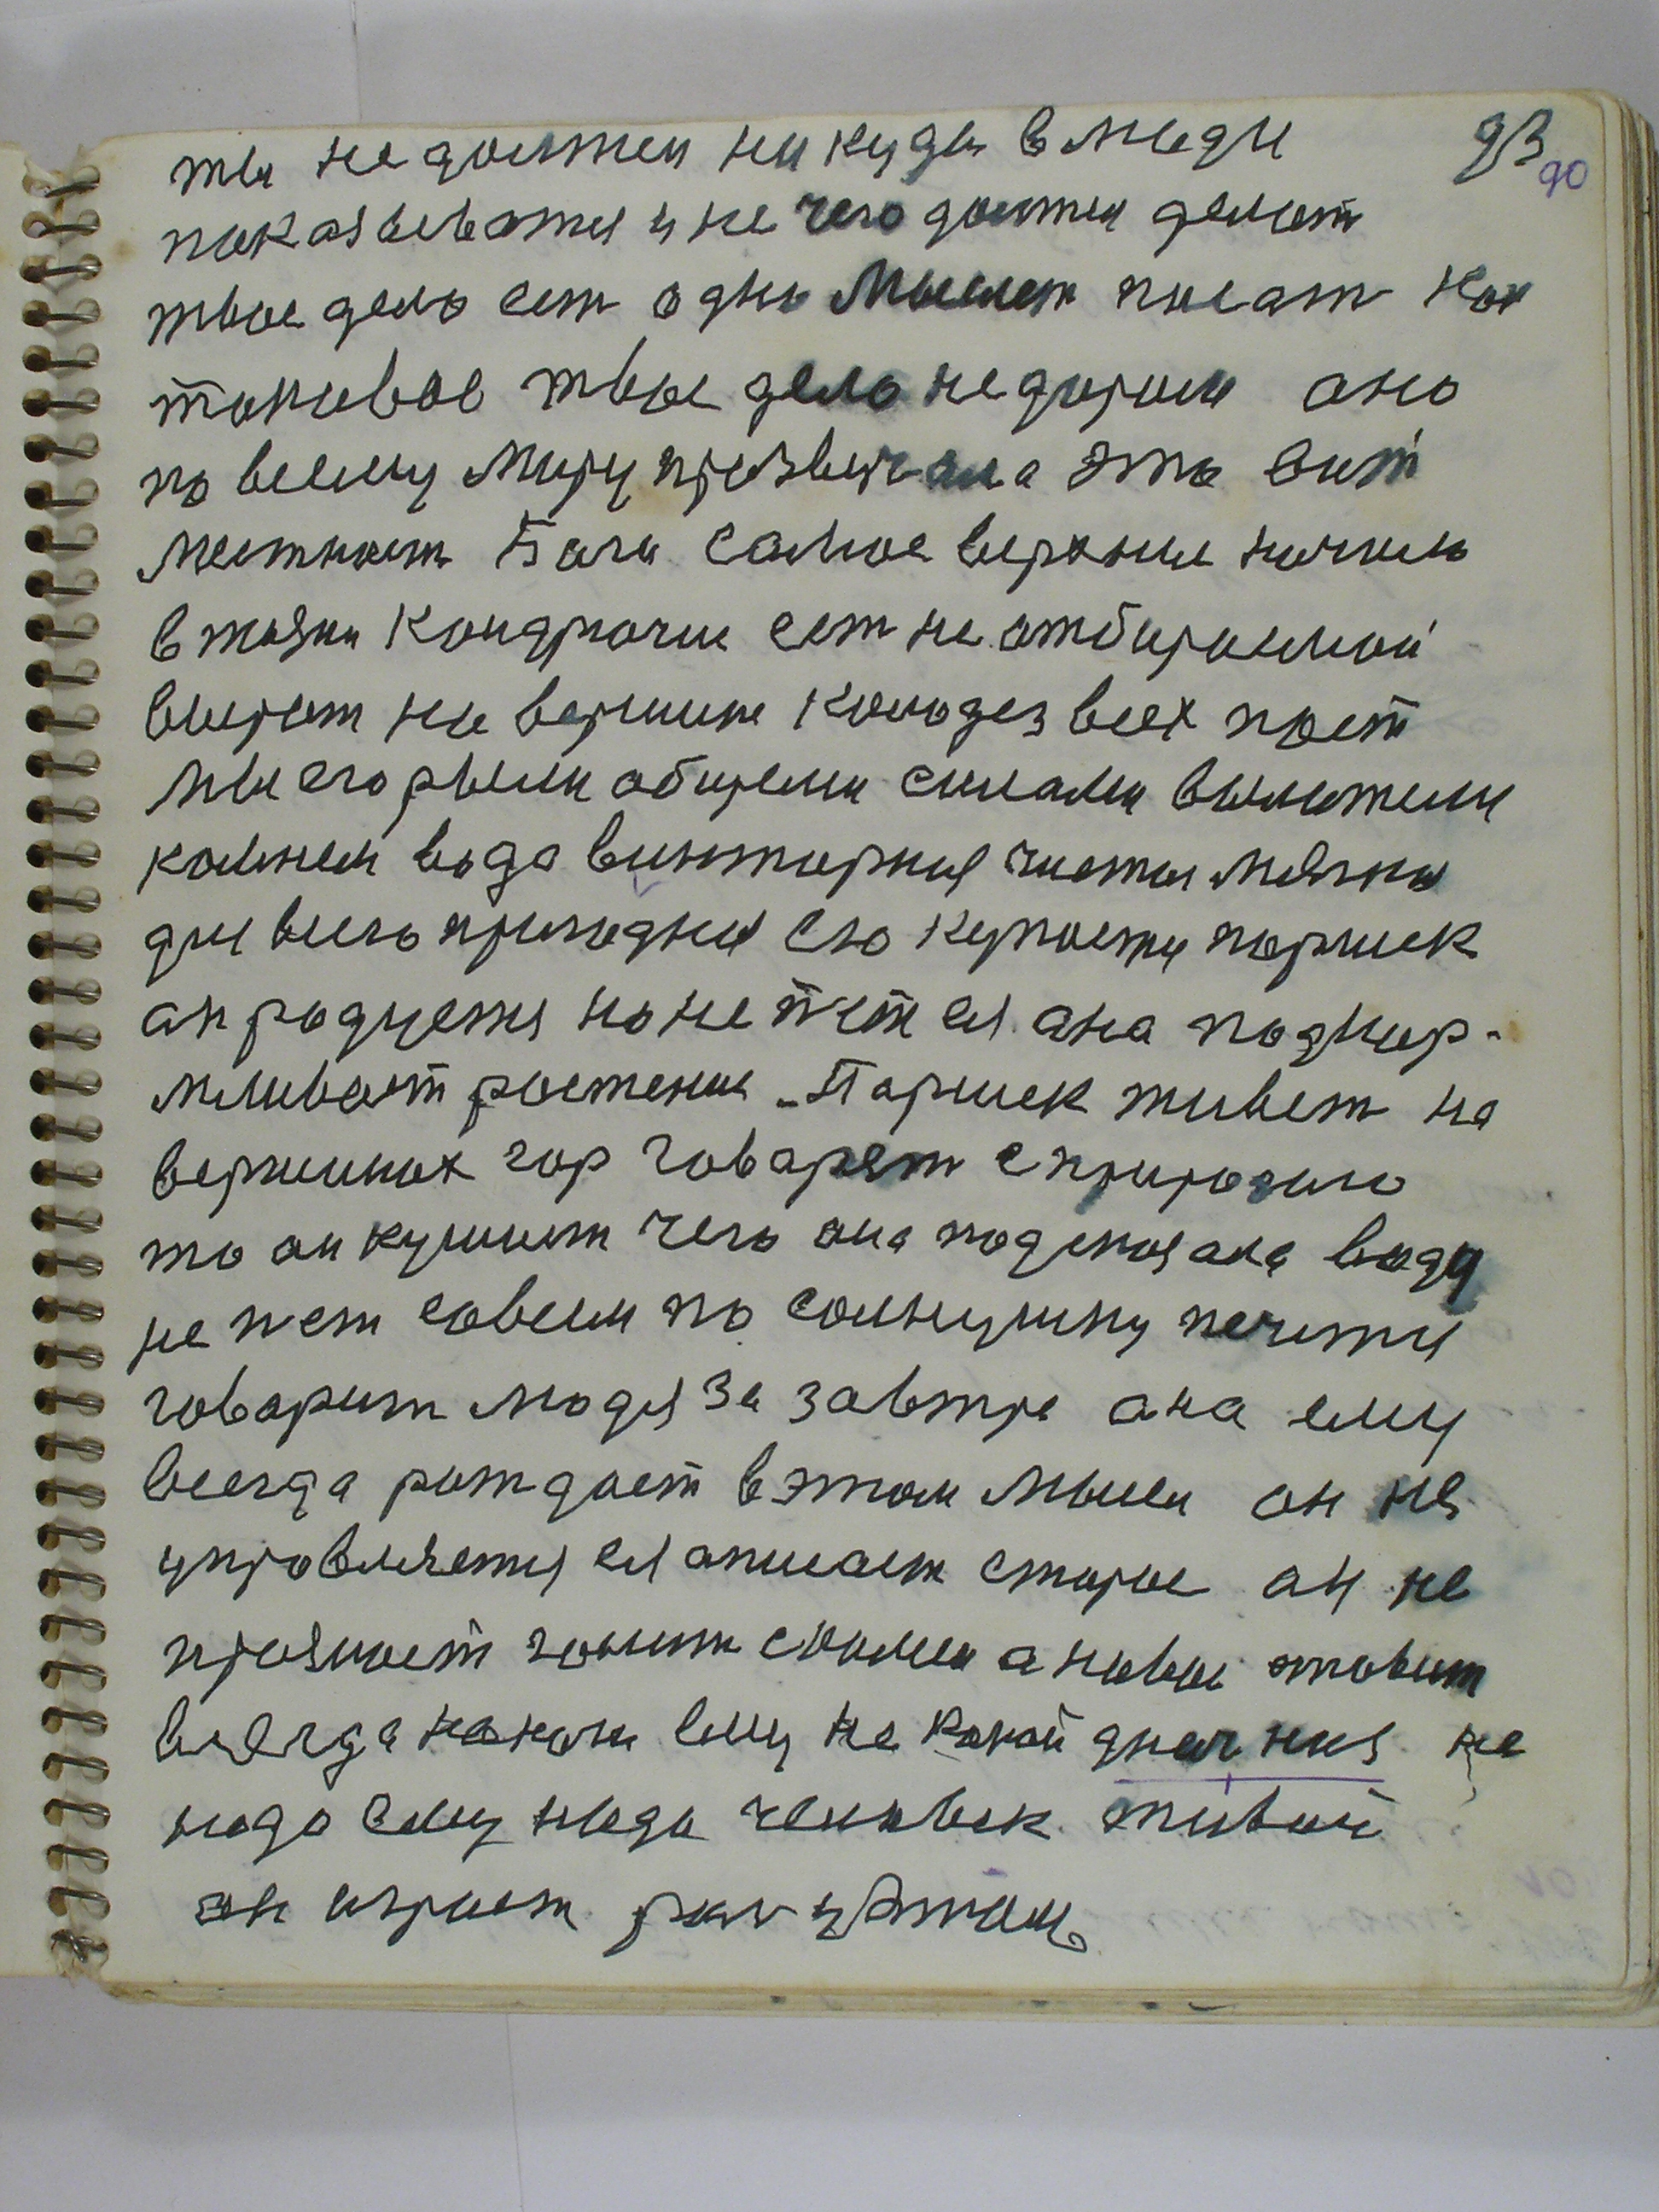 93
90
ты не должен ни куда в люди
показыватся и не чего должен делат
твое дело ест одно Мыслет писат Как
таковое твое дело не дорома оно
по всему миру прозвучала Это вит
местност Бога самое верхние начало
в жизни Кондрючие ест не отбираемой
вырыт на вершине Колодез всех поет
мы его рыли общеми силами выложели
камнем вода внктарная чистая мягка
для всего пригодная ею купается паршек
он радуется но не пет ея она подкар-
мливает растение Паршек живет на
вершинах гор говарят с природаю
то он кушает чего она подсказала воду
не пет совсем по солнушку печется
говарит людям За завтре она ему
всегда рождает в этом Мысли он не
управляется ея описает старое он не
признает гонит силами а новое ставит
всегда на ноги ему не какой не
надо ему надо человек живой
он играет рол